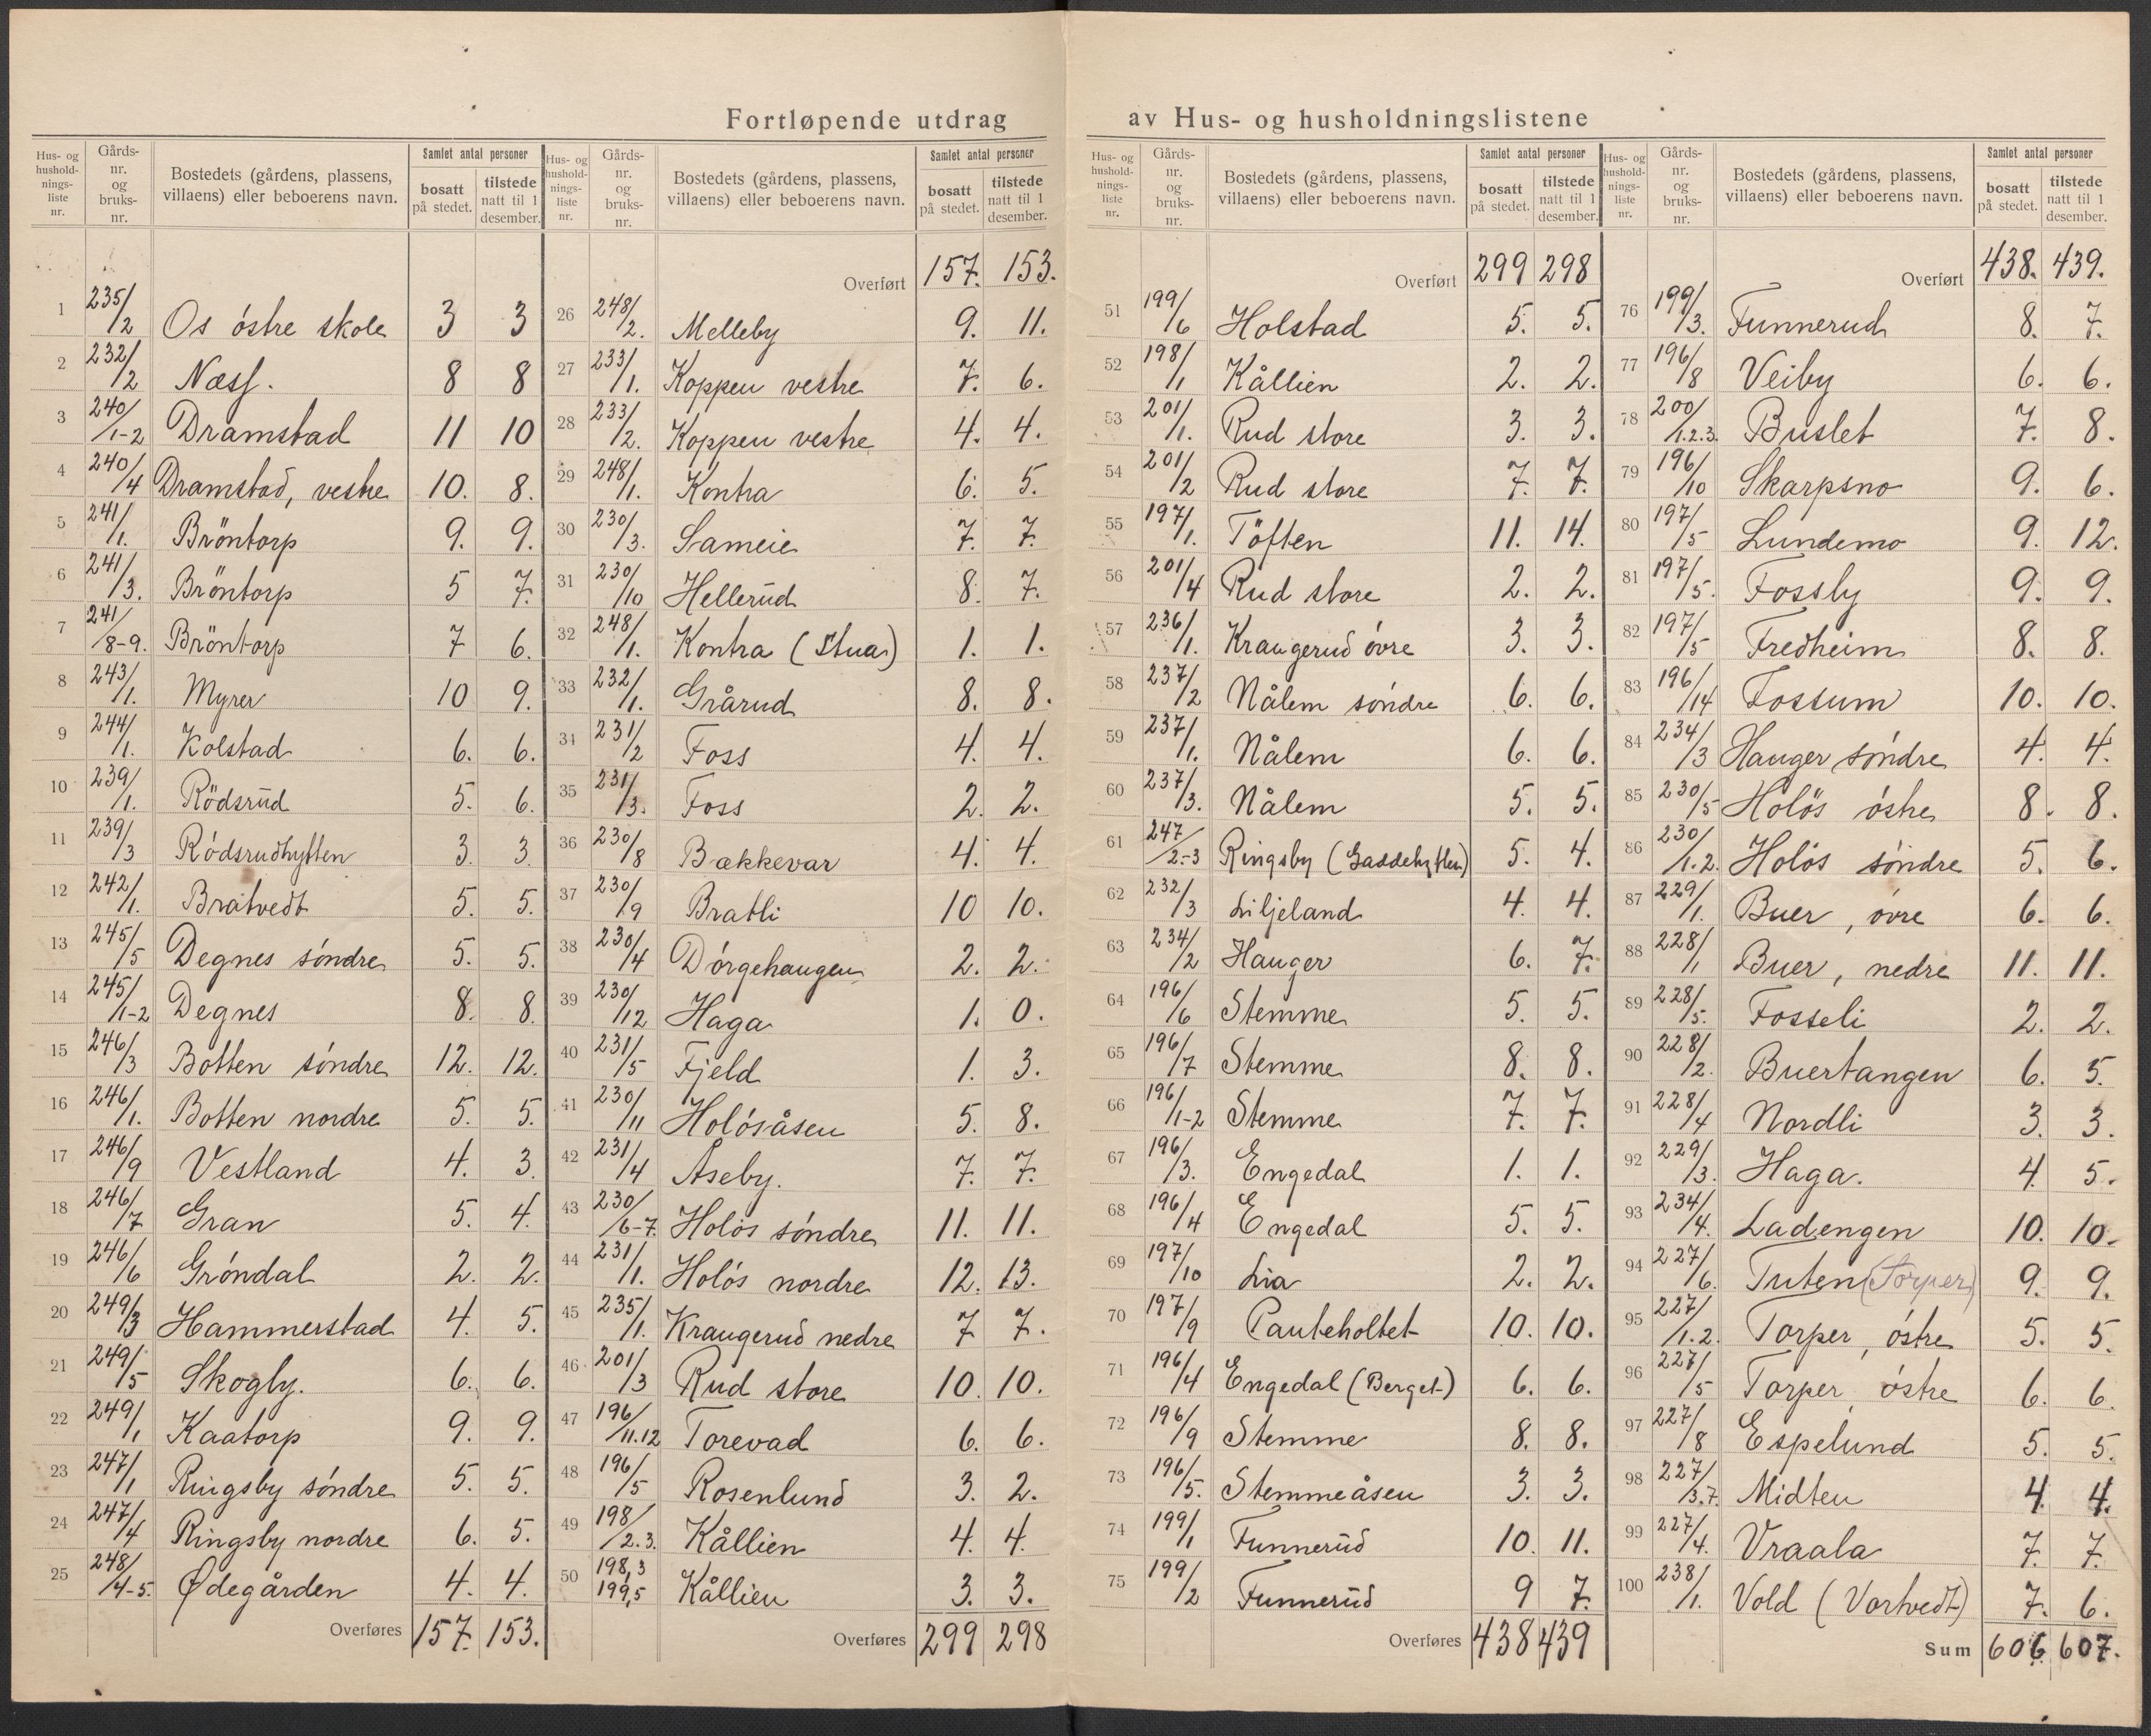 Fortløpende utdrag av Hus- og husholdningslistene
Hus- og hushold-nings-liste nr. | Gårds-nr. og bruks-nr. | Bostedets (gårdens, plassens, villaens) eller beboerens navn. | Samlet antal personer | bosatt på stedet. | tilstede natt til 1 desember.
1 235/2 Os östre skole 3 3
2 232/2 Næss. 8 8
3 240/1-2 Dramstad 11 10
4 240/4 Dramstad, vestre 10. 8.
5 241/1. Bröntorp 9. 9.
6 241/3. Bröntorp 5 7.
7 241/8-9. Bröntorp 7 6.
8 243/1. Myrer 10 9.
9 244/1. Kolstad 6. 6.
10 239/1. Rödsrud 5. 6.
11 239/3 Rödsrudhytten 3. 3.
12 242/1. Bratvedt 5. 5.
13 245/5 Degnes söndre 5. 5.
14 245/1-2 Degnes 8. 8.
15 246/3 Botten söndre 12. 12.
16 246/1. Botten nordre 5. 5.
17 246/9 Vestland 4. 3.
18 246/7 Gran 5. 4.
19 246/6 Gröndal 2. 2.
20 249/3 Hammerstad 4. 5.
21 249/5 Skogly. 6. 6.
22 249/1 Kaatorp 9. 9.
23 247/1 Ringsby söndre 5. 5.
24 247/4 Ringsby nordre 6. 5.
25 248/4-5. Ødegården 4. 4.
Overføres 157. 153.
Hus- og hushold-nings-liste nr. | Gårds-nr. og bruks-nr. | Bostedets (gårdens, plassens, villaens) eller beboerens navn. | Samlet antal personer | bosatt på stedet. | tilstede natt til 1 desember.
Overført 157. 153.
26 248/2. Melleby 9. 11.
27 233/1. Koppen vestre 7. 6.
28 233/2. Koppen vestre 4. 4.
29 248/1. Kontra 6. 5.
30 230/3. Sameie 7. 7.
31 230/10 Hellerud 8. 7.
32 248/1. Kontra (Stua) 1. 1.
33 232/1. Grårud 8. 8.
34 231/2 Foss 4. 4.
35 231/3. Foss 2. 2.
36 230/8 Bækkevar 4. 4.
37 230/9 Bratli 10 10.
38 230/4 Dörgehaugen 2. 2.
39 230/12 Haga 1. 0.
40 231/5 Fjeld 1. 3.
41 230/11 Holösåsen 5. 8.
42 231/4 Åseby. 7. 7.
43 230/6-7. Holös söndre 11. 11.
44 231/1. Holös nordre 12. 13.
45 235/1. Kraugerud nedre 7 7.
46 201/3 Rud store 10. 10.
47 196/11.12 Torevad 6. 6.
48 196/5 Rosenlund 3. 2.
49 198/2.3. Kållien 4. 4.
50 198,3 199,5 Kållien 3. 3.
Overføres 299 298
Hus- og hushold-nings-liste nr. | Gårds-nr. og bruks-nr. | Bostedets (gårdens, plassens, villaens) eller beboerens navn. | Samlet antal personer | bosatt på stedet. | tilstede natt til 1 desember.
Overført 299 298
51 199/6 Holstad 5. 5.
52 198/1 Kållien 2. 2.
53 201/1. Rud store 3. 3.
54 201/2 Rud store 7. 7.
55 197/1. Töften 11. 14.
56 201/4 Rud store 2. 2.
57 236/1. Kraugerud övre 3. 3.
58 237/2 Nålem söndre 6. 6.
59 237/1. Nålem 6. 6.
60 237/3. Nålem 5. 5.
61 247/2-3 Ringsby (Gaddehytten) 5. 4.
62 232/3 Liljeland 4. 4.
63 234/2 Hauger 6. 7.
64 196/6 Stemme 5. 5.
65 196/7 Stemme 8. 8.
66 196/1-2 Stemme 7. 7.
67 196/3. Engedal 1. 1.
68 196/4 Engedal 5. 5.
69 197/10 Lia 2. 2.
70 197/9 Pauteholtet 10. 10.
71 196/4 Engedal (Berget) 6. 6.
72 196/9 Stemme 8. 8.
73 196/5. Stemmeåsen 3. 3.
74 199/1 Funnerud 10. 11.
75 199/2 Funnerud 9 7.
Overføres 438 439
Hus- og hushold-nings-liste nr. | Gårds-nr. og bruks-nr. | Bostedets (gårdens, plassens, villaens) eller beboerens navn. | Samlet antal personer | bosatt på stedet. | tilstede natt til 1 desember.
Overført 438. 439.
76 199/3. Funnerud 8. 7.
77 196/8 Veiby 6. 6.
78 200/1.2.3. Buslet 7. 8.
79 196/10 Skarpsno 9. 6.
80 197/5 Lundemo 9. 12.
81 197/5. Fossby 9. 9.
82 197/5 Fredheim 8. 8.
83 196/14 Fossum 10. 10.
84 234/3 Hauger söndre 4. 4.
85 230/5 Holös östre 8. 8.
86 230/1.2. Holös söndre 5. 6.
87 229/1. Buer, övre 6. 6.
88 228/1 Buer, nedre 11. 11.
89 228/5. Fosseli 2. 2.
90 228/2. Buertangen 6. 5.
91 228/4 Nordli 3. 3.
92 229/3. Haga. 4. 5.
93 234/4. Ladengen 10. 10.
94 227/6. Tuten (Torper) 9. 9.
95 227/1.2. Torper, östre 5. 5.
96 227/5 Torper, östre 6. 6.
97 227/8 Espelund 5. 5.
98 227/3.7. Midten 4. 4.
99 227/4. Vraala 7. 7.
100 238/1. Vold (Vortvedt) 7. 6.
Sum 606 607.